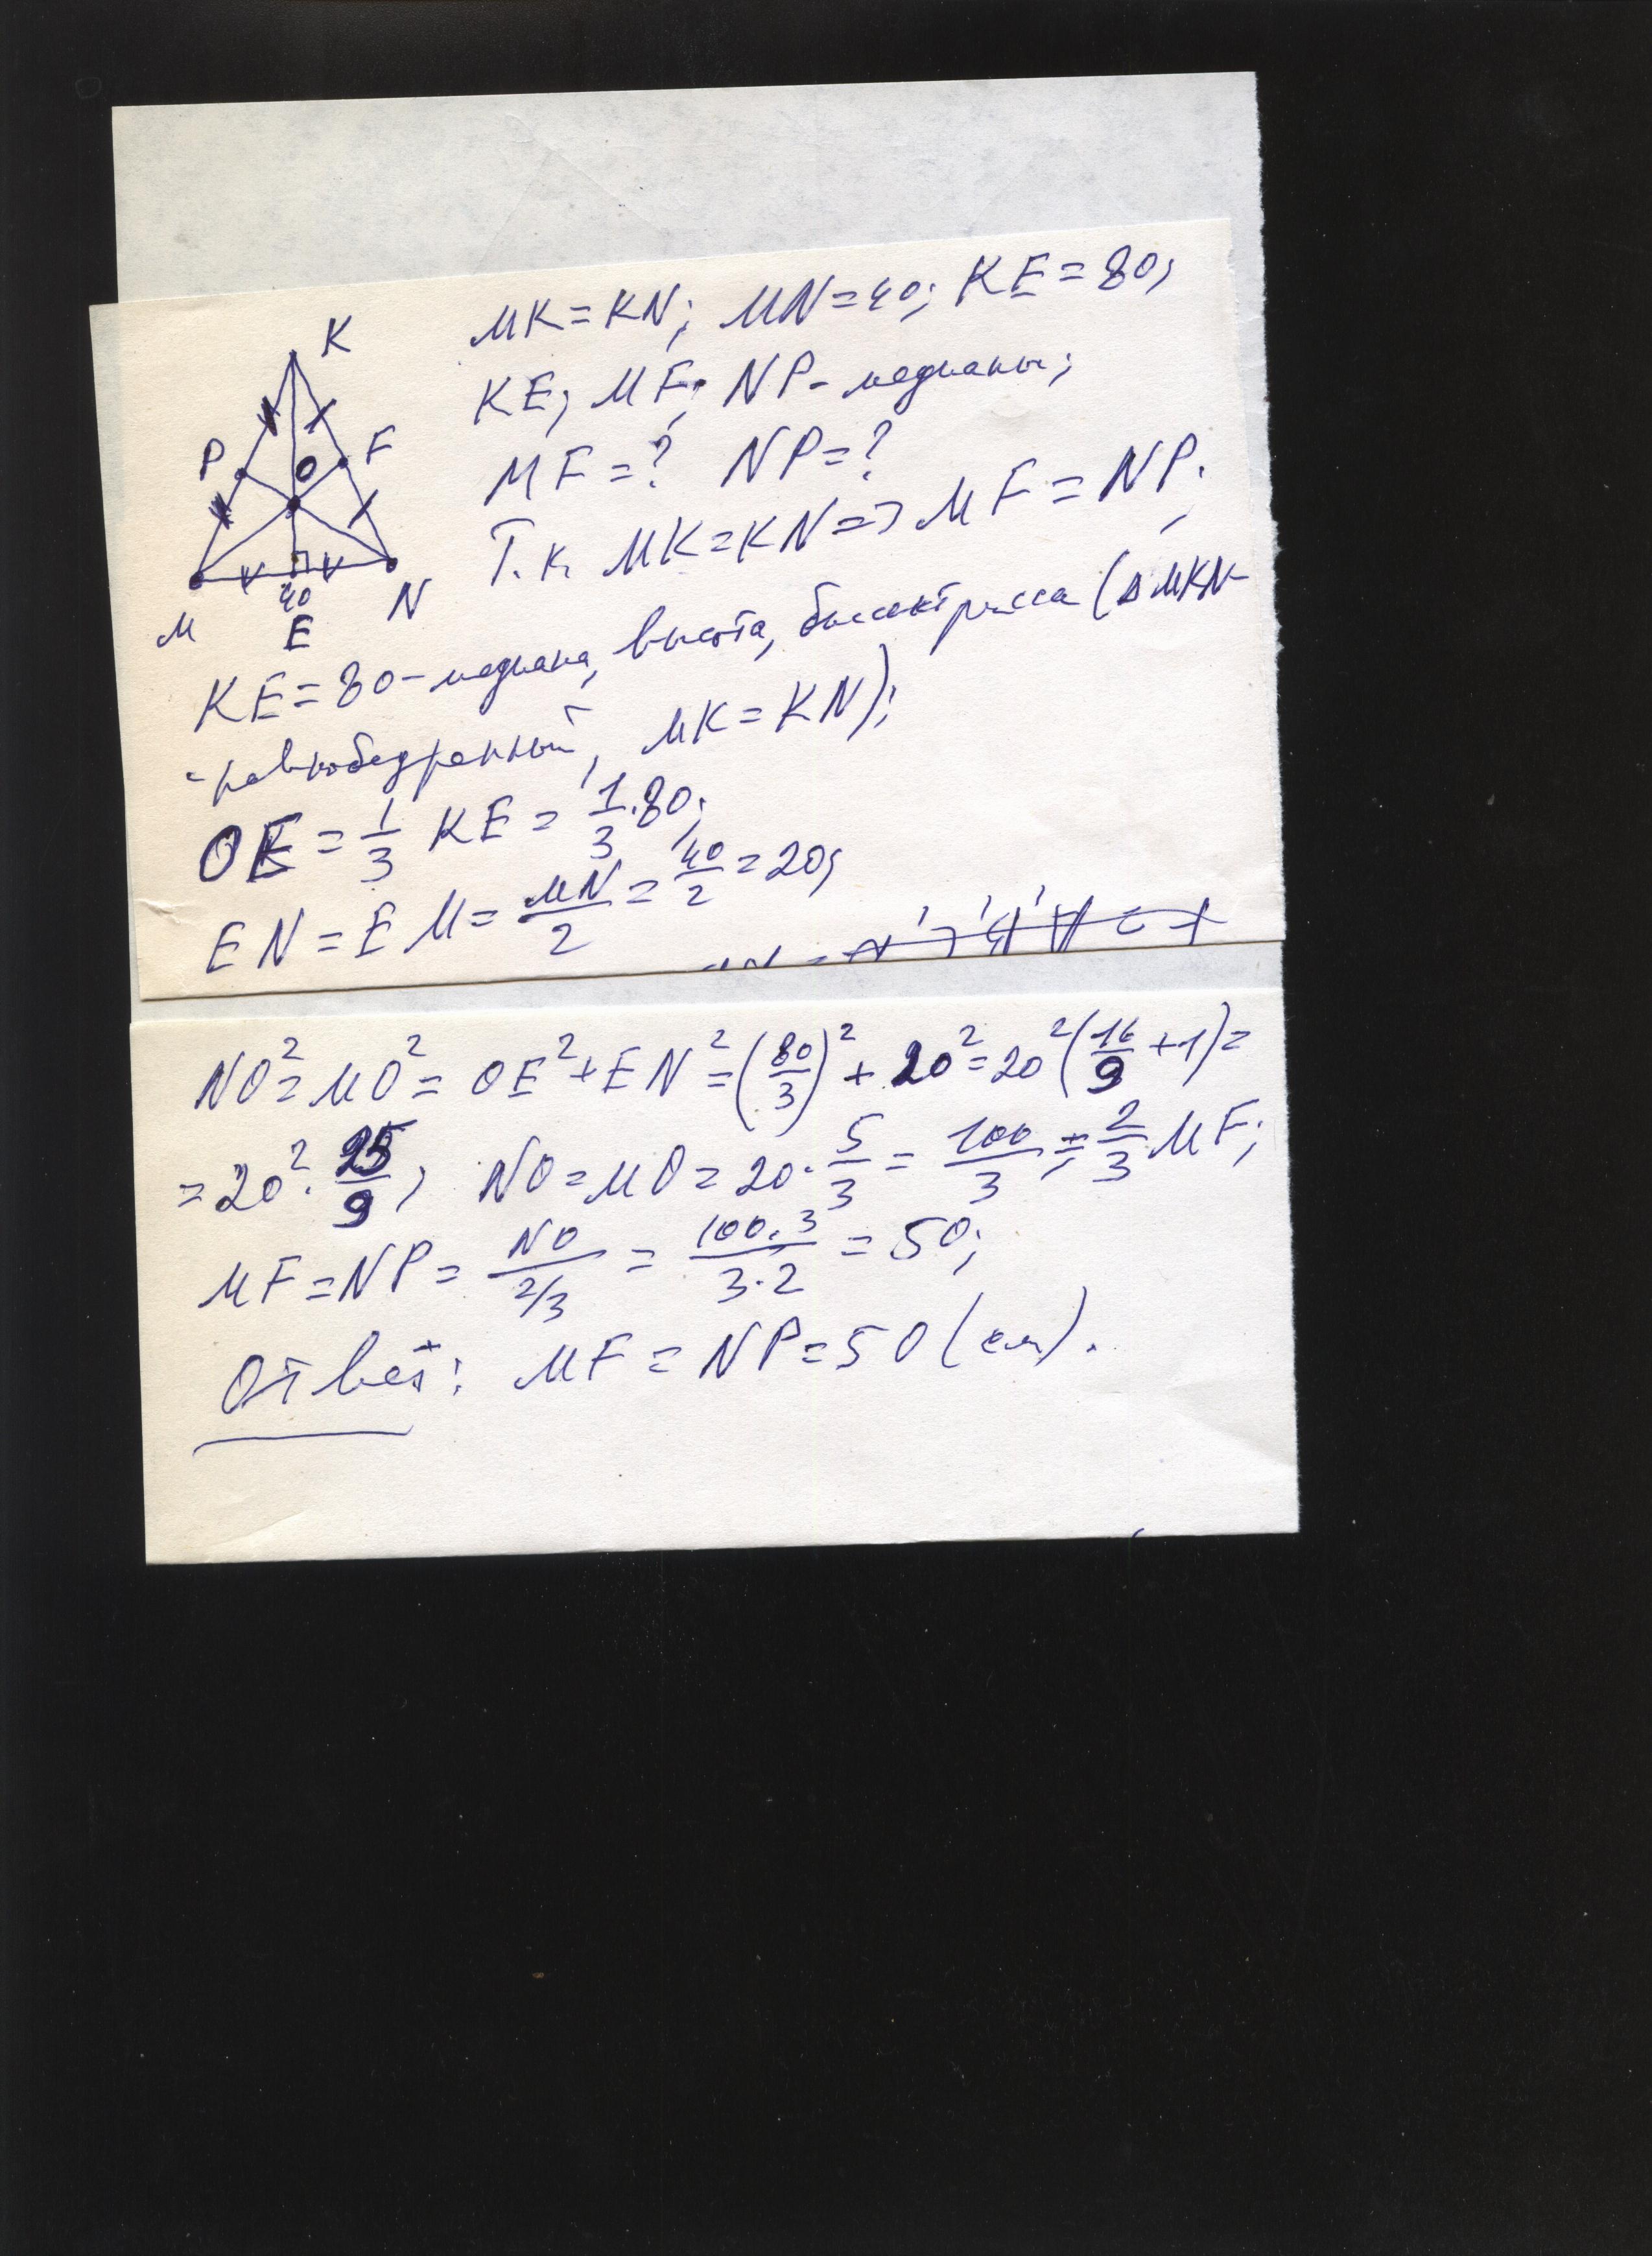 K
P
F
O
M
40
E
N
MK=KN; MN=40; KE=80;
KE; MF; NP- медианы;
MF=? NP=?
Т.к. MK=KN=> MF=NP;
KE=80- медиана, высота, биссектриса (Δ MKN-
-равнобедренный, MK=KN);
OE = 1/3 KE = 1/3·80;
EN=EM= MN/2 = 40/2 = 20;
NO²=MO²= OE²+EN²=(80/3)²+20²=20²(16/9+1)=
=20²·25/9; NO=MO=20·5/3=100/3=2/3 MF;
MF=NP= NO/(2/3) = 100·3/3·2 = 50;
Ответ: MF=NP=50(см).